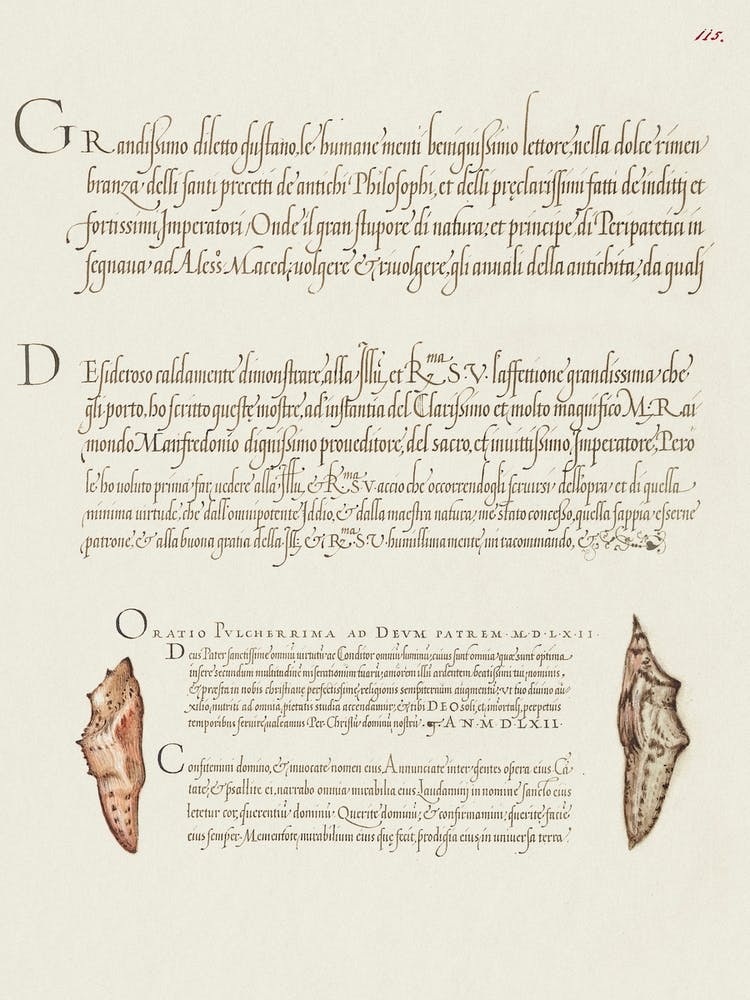 115.
GRandissimo diletto gustano, le humane menti benignissimo lettore, nella dolce rimen
branza delli santi precetti de antichi Philosophi, et delli pręclarissimi fatti de inditti et
fortissimi Imperatori / Onde il gran stupore di natura, et principe di Peripatetici in
segnava ad Aless.º Maced: volgere & rivolgere gli annali della antichita, da quali
DEsideroso caldamente dimonstrare, alla Illu, et R.ma S. V. l'affettione grandissima che
gli porto, ho scritto queste mostre, ad instantia del Clarissimo et molto magnifico M. Rai
mondo Manfredonio dignissimo proveditore, del sacro, et invittissimo Imperatore, Pero
le ho voluto prima far vedere alla Illu, & R.ma S. V. accio che occorrendogli servirsi dell'opra et di quella
minima virtude, che dall'omnipotente Iddio, & dalla maestra natura, me stato concesso, quella sappia esserne
patrone, & alla buona gratia della Ill: & R.ma S. V. humillimamente, mi racommando, &
ORATIO PVLCHERRIMA AD DEVM PATREM · M · D · L · X · II ·
Deus Pater sanctissime omniū virtutū ac Conditor omniū luminū, cuius sunt omnia quæ sunt optima
insere secundum multitudinē miserationum tuarū, amorem illū ardentem beatissimi tui, nominis,
& præsta in nobis christianę perfectissimę religionis sempiternum augmentū, vt tuo divino au-
xilio, nutriti ad omnia, pietatis studia accendamur, & tibi DEO soli, et, imortali, perpetuis
temporibus servire, valeamus Per Christū dominū nostrū. AN · M · D · LXII ·
Confitemini domino, & invocate nomen eius Annunciate inter gentes opera eius Cā
tate, & psallite ei, narrabo omnia mirabilia eius Laudamini in nomine sancto eius
letetur cor, querentiū dominū Querite dominū, & confirmamini, querite, faciē
eius semper Mementote, mirabilium eius quę fecit, prodigia eius, in universa terra